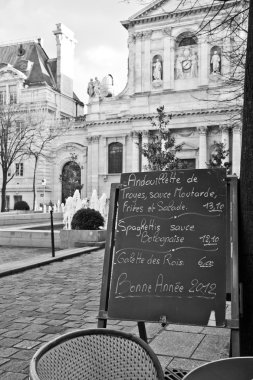 Andouillette de
Troyes, sauce Moutarde,
Frites et Salade. 13,10
Spaghettis sauce
Bolognaise 12,10
Galette des Rois 6,00
Bonne Année 2012